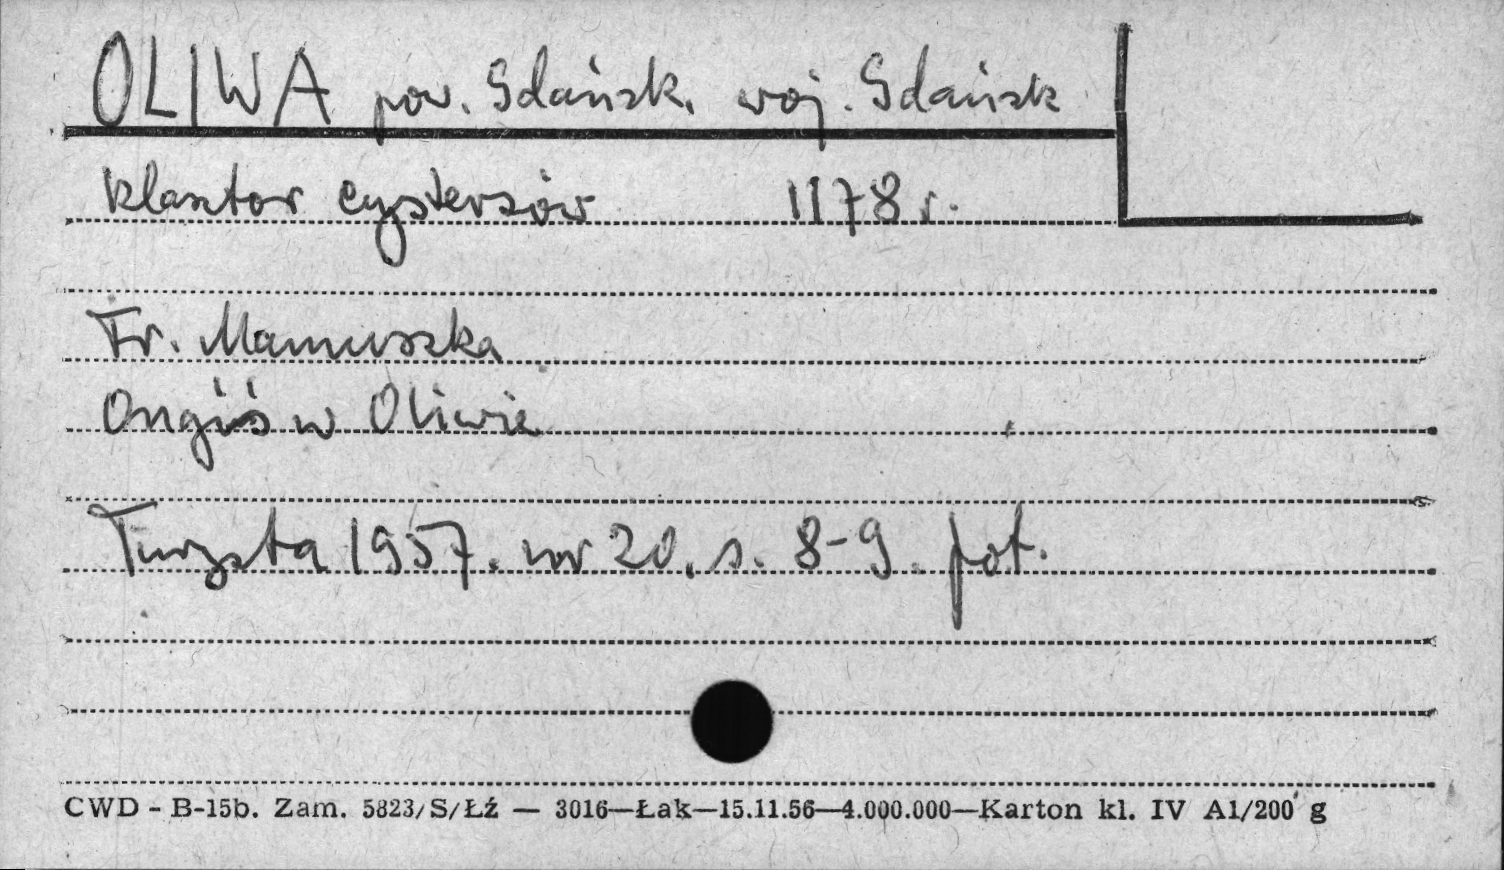 OLIWA pow. Gdańsk, woj. Gdańsk
klasztor cystersów 1178 r.
Fr. Mamuszka
Ongiś w Oliwie
Turysta 1957. nr 20. s. 8-9. fot.
CWD - B-15b. Zam. 5823/S/Łź — 3016—Łak—15.11.56—4.000.000—Karton kl. IV A1/200 g